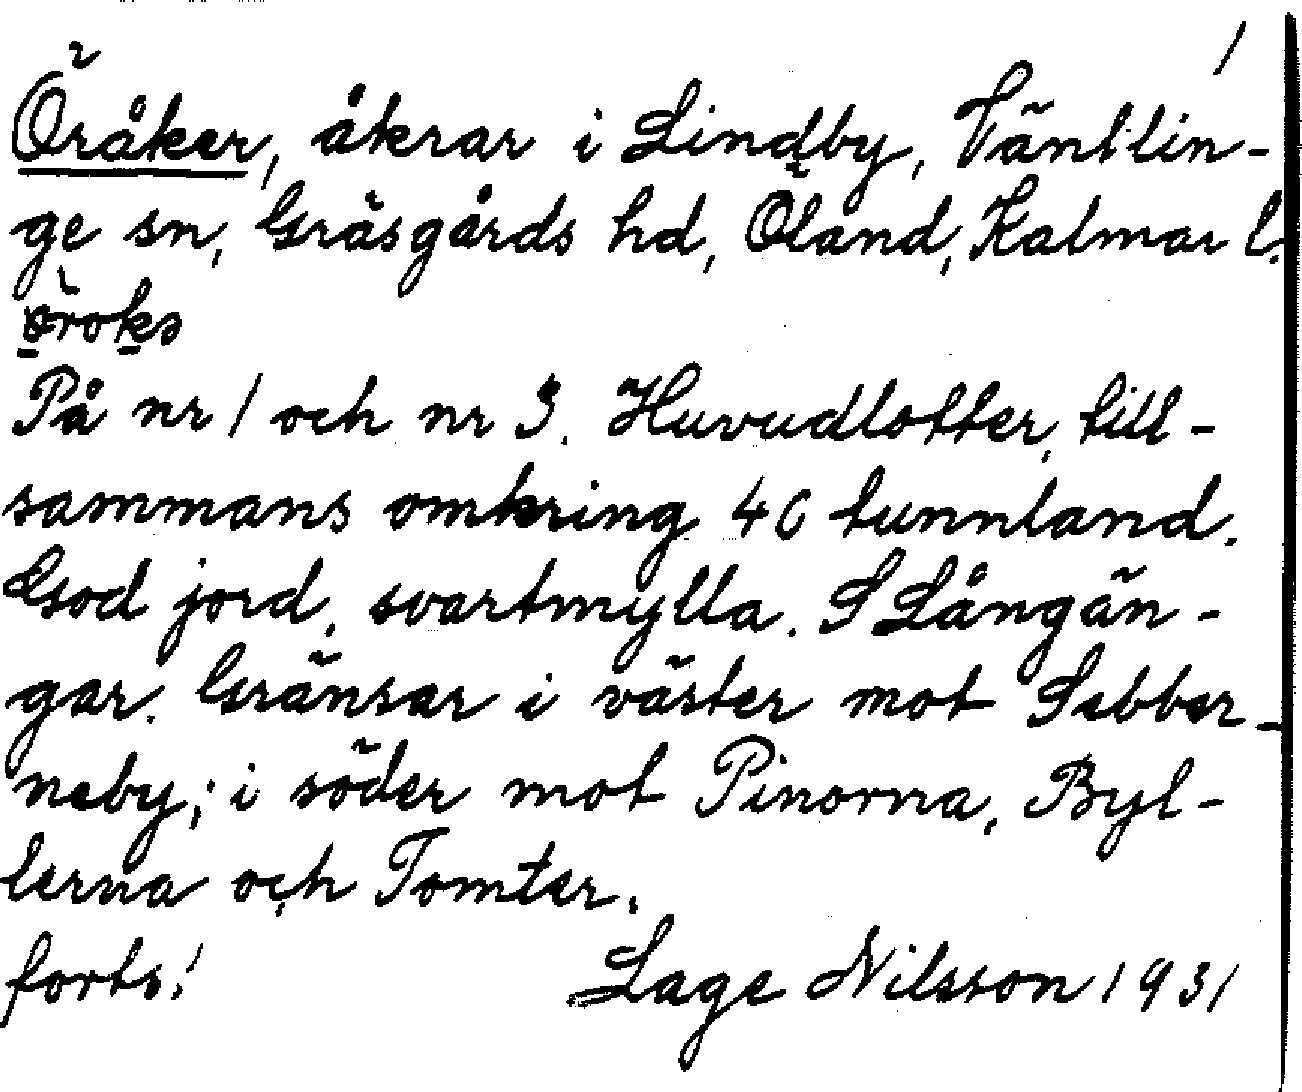 1
Öråker, åkrar i Lindby, Väntlin-
ge sn, Gräsgårds hd, Öland, Kalmar l.
På nr 1 och nr 3. Huvudlotter, till-
sammans omkring 40 tunnland.
God jord, svartmylla. S Långän-
gar. Gränsar i väster mot Sebber-
neby; i söder mot Pinorna, Byl-
lerna och Tomter.
forts!
Lage Nilsson 1931